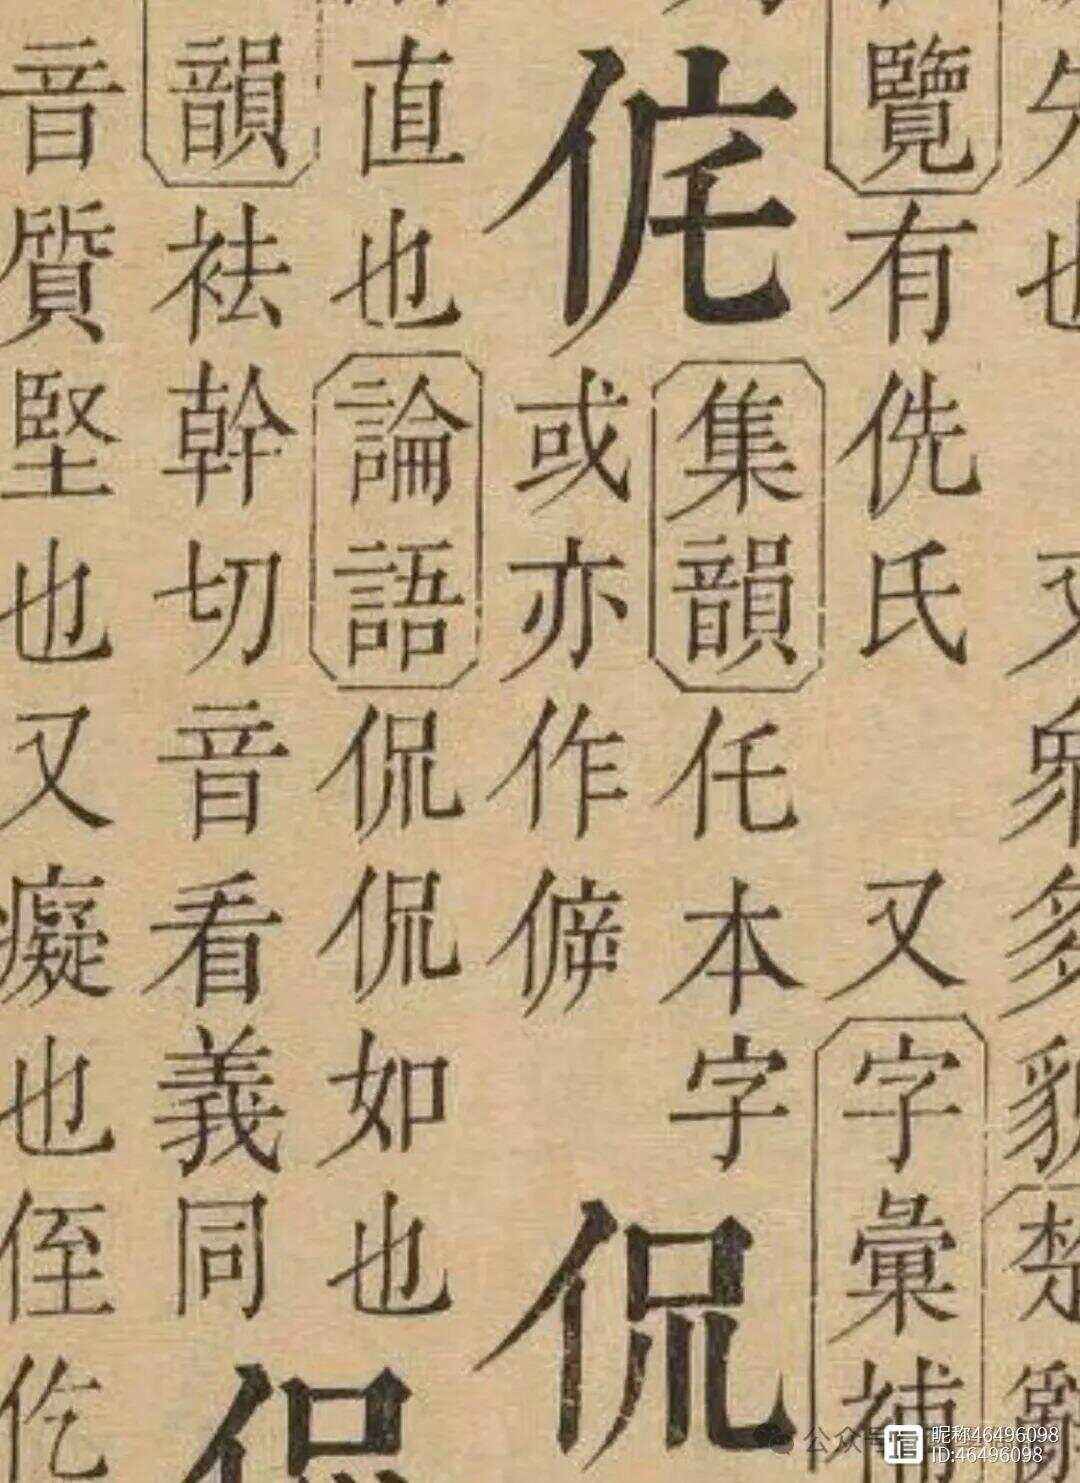 也
又
覽有侁氏
又字彙補
侂
集韻仛本字
或亦作𠌥
侃
直也論語侃侃如也
韻袪幹切音看義同
侃
音質堅也又癡也侄仡
昵称46496098
ID:46496098